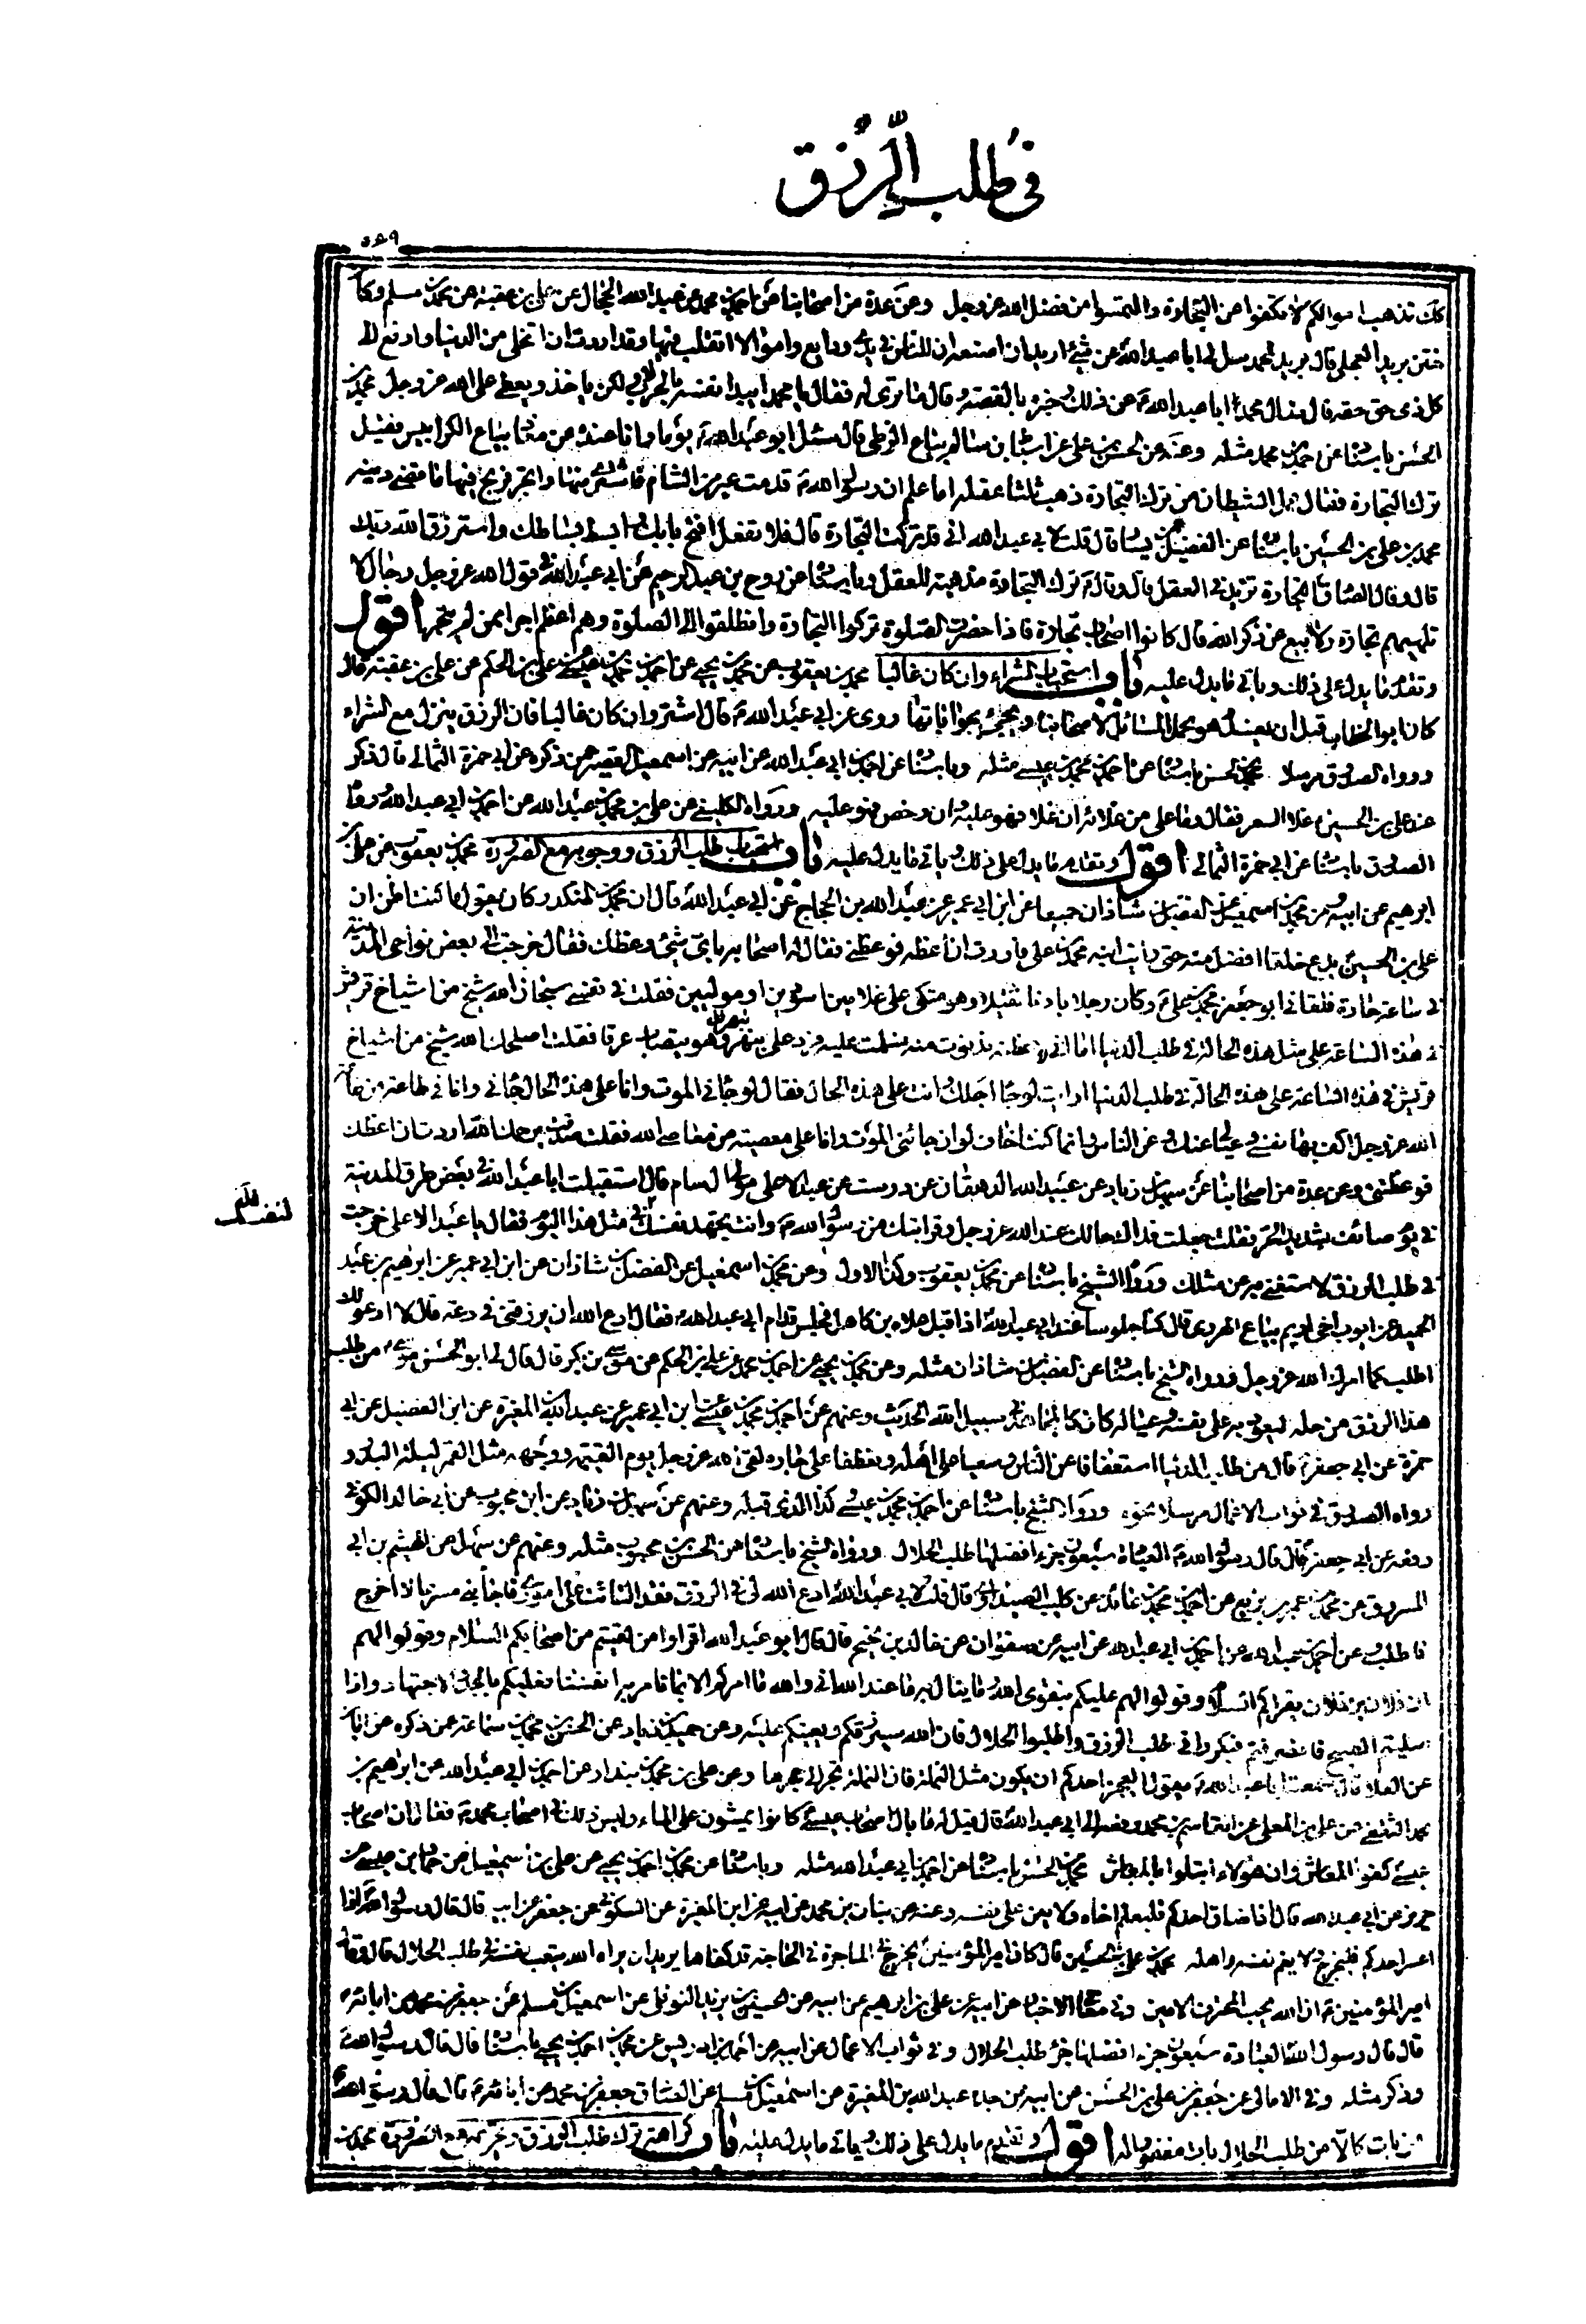 في طلب الرزق
٥٤٩
كك تذهب اموالكم لا تكفوا عن التجارة والتمسوا من فضل الله عز وجل وعن عدة من اصحابنا عن احمد بن محمد عن عبد الله الحجال عن علي بن عقبة عن محمد بن مسلم وكان
ختن بريد العجلي قال بريد لمحمد سل لي ابا عبد الله عن شئ اريد ان اصنعه ان للناس في يدي ودايع واموالا اتقلب فيها وقد اردت ان اتخلى من الدنيا وادفع الى
كل ذي حق حقه قال فسال محمد ابا عبد الله ع عن ذلك وخبره بالقصة وقال ما ترى له فقال يا محمد ايبدا نفسه بالحرب لا ولكن ياخذ ويعطي على الله عز وجل محمد بن
الحسن باسناده عن احمد بن محمد مثله وعنه عن الحسن بن علي عن اسباط بن سالم بياع الزطي قال سئل ابو عبد الله ع يوما وانا عنده عن معاذ بياع الكرابيس فقيل
ترك التجارة فقال عمل الشيطان من ترك التجارة ذهب ثلثا عقله اما علم ان رسول الله ص قدمت عير من الشام فاشترى منها واتجر فربح فيها ما قضى دينه
محمد بن علي بن الحسين باسناده عن الفضيل بن يسار قال قلت لابي عبد الله اني قد تركت التجارة قال فلا تفعل افتح بابك وابسط بساطك واسترزق الله ربك
قال وقال الصادق ع التجارة تزيد في العقل قال وقال ع ترك التجارة مذهبة للعقل وباسناده عن روح بن عبد الرحيم عن ابي عبد الله في قول الله عز وجل رجال لا
تلهيهم تجارة ولا بيع عن ذكر الله قال كانوا اصحاب تجارة فاذا حضرت الصلوة تركوا التجارة وانطلقوا الى الصلوة وهم اعظم اجرا ممن لم يتجر اقول
وتقدم ما يدل على ذلك وياتي ما يدل عليه باب استحباب الشراء وان كان غاليا محمد بن يعقوب عن محمد بن يحيى عن احمد بن محمد بن عيسى عن علي بن الحكم عن علي بن عقبة قال
كان ابو الخطاب قبل ان يفسد وهو يحمل المسائل لاصحابنا ويجئ بجواباتها روى عن ابي عبد الله ع قال اشتروا وان كان غاليا فان الرزق ينزل مع الشراء
ورواه الصدوق مرسلا محمد بن الحسن باسناده عن احمد بن محمد بن عيسى مثله وباسناده عن احمد بن ابي عبد الله عن ابيه عن اسمعيل القصير عمن ذكره عن ابي حمزة الثمالي قال ذكر
عند علي بن الحسين ع غلاء السعر فقال وما علي من غلائه ان غلا فهو عليه وان رخص فهو عليه ورواه الكليني عن علي بن محمد بن عبد الله عن احمد بن ابي عبد الله ورواه
الصدوق باسناده عن ابي حمزة الثمالي اقول وتقدم ما يدل على ذلك وياتي ما يدل عليه باب استحباب طلب الرزق ووجوبه مع الضرورة محمد بن يعقوب عن علي بن
ابرهيم عن ابيه وعن محمد بن اسمعيل عن الفضل بن شاذان جميعا عن ابن ابي عمير عن عبد الله بن الحجاج عن ابي عبد الله قال ان محمد بن المنكدر كان يقول ما كنت اظن ان
علي بن الحسين يدع خلفا افضل منه حتى رايت ابنه محمد بن علي فاردت ان اعظه فوعظني فقال له اصحابه باي شئ وعظك فقال خرجت الى بعض نواحي المدينة
في ساعة حارة فلقاني ابو جعفر محمد بن علي ع وكان رجلا بادنا ثقيلا وهو متكئ على غلامين اسودين او موليين فقلت في نفسي سبحان الله شيخ من اشياخ قريش
في هذه الساعة على مثل هذه الحالة في طلب الدنيا اما اني لاعظنه فدنوت منه فسلمت عليه فرد علي بنهر وهو يتصاب عرقا فقلت اصلحك الله شيخ من اشياخ
قريش في هذه الساعة على هذه الحالة في طلب الدنيا ارايت لو جاء اجلك وانت على هذه الحال فقال لو جاءني الموت وانا على هذه الحال جاءني وانا في طاعة من طاعة
الله عز وجل اكف بها نفسي وعيالي عنك وعن الناس وانما كنت اخاف لو ان جائني الموت وانا على معصية من معاصي الله فقلت صدقت يرحمك الله اردت ان اعظك
فوعظتني وعن عدة من اصحابنا عن سهل بن زياد عن عبيد الله الدهقان عن درست عن عبد الاعلى مولى ال سام قال استقبلت ابا عبد الله في بعض طرق المدينة
في يوم صائف شديد الحر فقلت جعلت فداك حالك عند الله عز وجل وقرابتك من رسول الله ص وانت تجهد نفسك في مثل هذا اليوم فقال يا عبد الاعلى خرجت
في طلب الرزق لاستغني به عن مثلك ورواه الشيخ باسناده عن محمد بن يعقوب وكذا الاول وعن محمد بن اسمعيل عن الفضل بن شاذان عن ابن ابي عمير عن ابرهيم بن عبد
الحميد عن ايوب اخي اديم بياع الهروي قال كنا جلوسا عند ابي عبد الله اذ اقبل علاء بن كامل فجلس قدام ابي عبد الله فقال ادع الله ان يرزقني في دعة قال لا ادعو لك
اطلب كما امرك الله عز وجل ورواه الشيخ باسناده عن الفضل بن شاذان مثله وعن محمد بن يحيى عن احمد بن محمد عن علي بن الحكم عن موسى بن بكر قال قال لي ابو الحسن موسى ع من طلب
هذا الرزق من حله ليعود به على نفسه وعياله كان كالمجاهد في سبيل الله الحديث وعنهم عن احمد بن محمد بن عيسى عن ابن ابي عمير عن عبد الله بن المغيرة عن ابن الفضيل عن ابي
حمزة عن ابي جعفر ع قال من طلب الدنيا استعفافا عن الناس وسعيا على اهله وتعطفا على جاره لقي الله عز وجل يوم القيمة ووجهه مثل القمر ليلة البدر و
رواه الصدوق في ثواب الاعمال مرسلا نحوه ورواه الشيخ باسناده عن احمد بن محمد بن عيسى كذا الذي قبله وعنهم عن سهل بن زياد عن ابن محبوب عن ابي خالد الكوفي
رفعه عن ابي جعفر ع قال قال رسول الله ص العبادة سبعون جزءا افضلها طلب الحلال ورواه الشيخ باسناده عن الحسن بن محبوب مثله وعنهم عن سهل عن الهيثم بن ابي
المسروق عن محمد بن عمر بن بزيع عن احمد بن محمد بن عائذ عن كليب الصيداوي قال قلت لابي عبد الله ادع الله لي في الرزق فقد التاثت علي اموري فاجابني مسرعا لا اخرج
فاطلب وعن احمد بن عبد الله عن احمد بن ابي عبد الله عن ابيه عن صفوان عن خالد بن نجيح قال قال ابو عبد الله اقراوا من لقيتم من اصحابكم السلام وقولوا لهم
ان فلان بن فلان يقراكم السلام وقولوا لهم عليكم بتقوى الله وما ينال به ما عند الله اني والله ما امركم الا بما نامر به انفسنا فعليكم بالجد والاجتهاد واذا
صليتم الصبح فانصرفتم فبكروا في طلب الرزق واطلبوا الحلال فان الله سيرزقكم ويعينكم عليه وعن حميد بن زياد عن الحسن بن محمد بن سماعة عمن ذكره عن ابان
عن العلا قال سمعت ابا عبد الله ع يقول ايعجز احدكم ان يكون مثل النملة فان النملة تجر الى جحرها وعن علي بن محمد بن بندار عن احمد بن ابي عبد الله عن ابراهيم بن
محمد الثقفي عن علي بن المعلى عن القاسم بن محمد رفعه الى ابي عبد الله قال قيل له ما بال اصحاب عيسى كانوا يمشون على الماء وليس ذلك في اصحاب محمد ص فقال ان اصحاب
عيسى كفوا المعاش وان هؤلاء ابتلوا بالمعاش محمد بن الحسن باسناده عن احمد بن ابي عبد الله مثله وباسناده عن محمد بن احمد بن يحيى عن علي بن اسمعيل عن حماد بن عيسى عن
حريز عن ابي عبد الله قال اذا ضاق احدكم فليعلم اخاه ولا يعين على نفسه وعنه عن بنان بن محمد عن ابيه عن ابن المغيرة عن السكوني عن جعفر عن ابيه قال قال رسول الله ص اذا
اعسر احدكم فليخرج ولا يغم نفسه واهله محمد بن علي بن الحسين قال كان امير المؤمنين يخرج في الهاجرة في الحاجة قد كفاها يريد ان يراه الله يتعب نفسه في طلب الحلال قال وقال
امير المؤمنين ع ان الله يحب المحترف الامين وفي معاني الاخبار عن ابيه عن علي بن ابرهيم عن ابيه عن الحسين بن يزيد النوفلي عن اسمعيل بن مسلم عن جعفر بن محمد عن ابائه
قال قال رسول الله العبادة سبعون جزءا افضلها جزء طلب الحلال وفي ثواب الاعمال عن ابيه عن احمد بن ادريس عن محمد بن احمد بن يحيى باسناده قال قال رسول الله ص
وذكر مثله وفي الامالي عن جعفر بن علي بن الحسن عن ابيه عن جده عبد الله بن المغيرة عن اسمعيل بن مسلم عن الصادق جعفر بن محمد عن ابائه ع قال قال رسول الله ص
من بات كالا من طلب الحلال بات مغفورا له اقول وتقدم ما يدل على ذلك وياتي ما يدل عليه باب كراهة ترك طلب الرزق وتحريمه مع الضرورة محمد بن